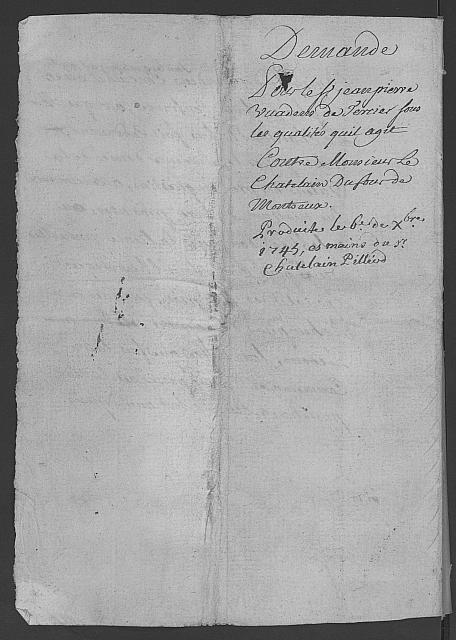 Demande
Pour le Sr jean pierre
Vuadens de Tercier sous
les qualités quil agit
Contre Monsieur Le
Chatelain Dufour de
Montreux.
Produite le 6e. de Xbre.
1745, es mains du Sr.
Chatelain Pilliod